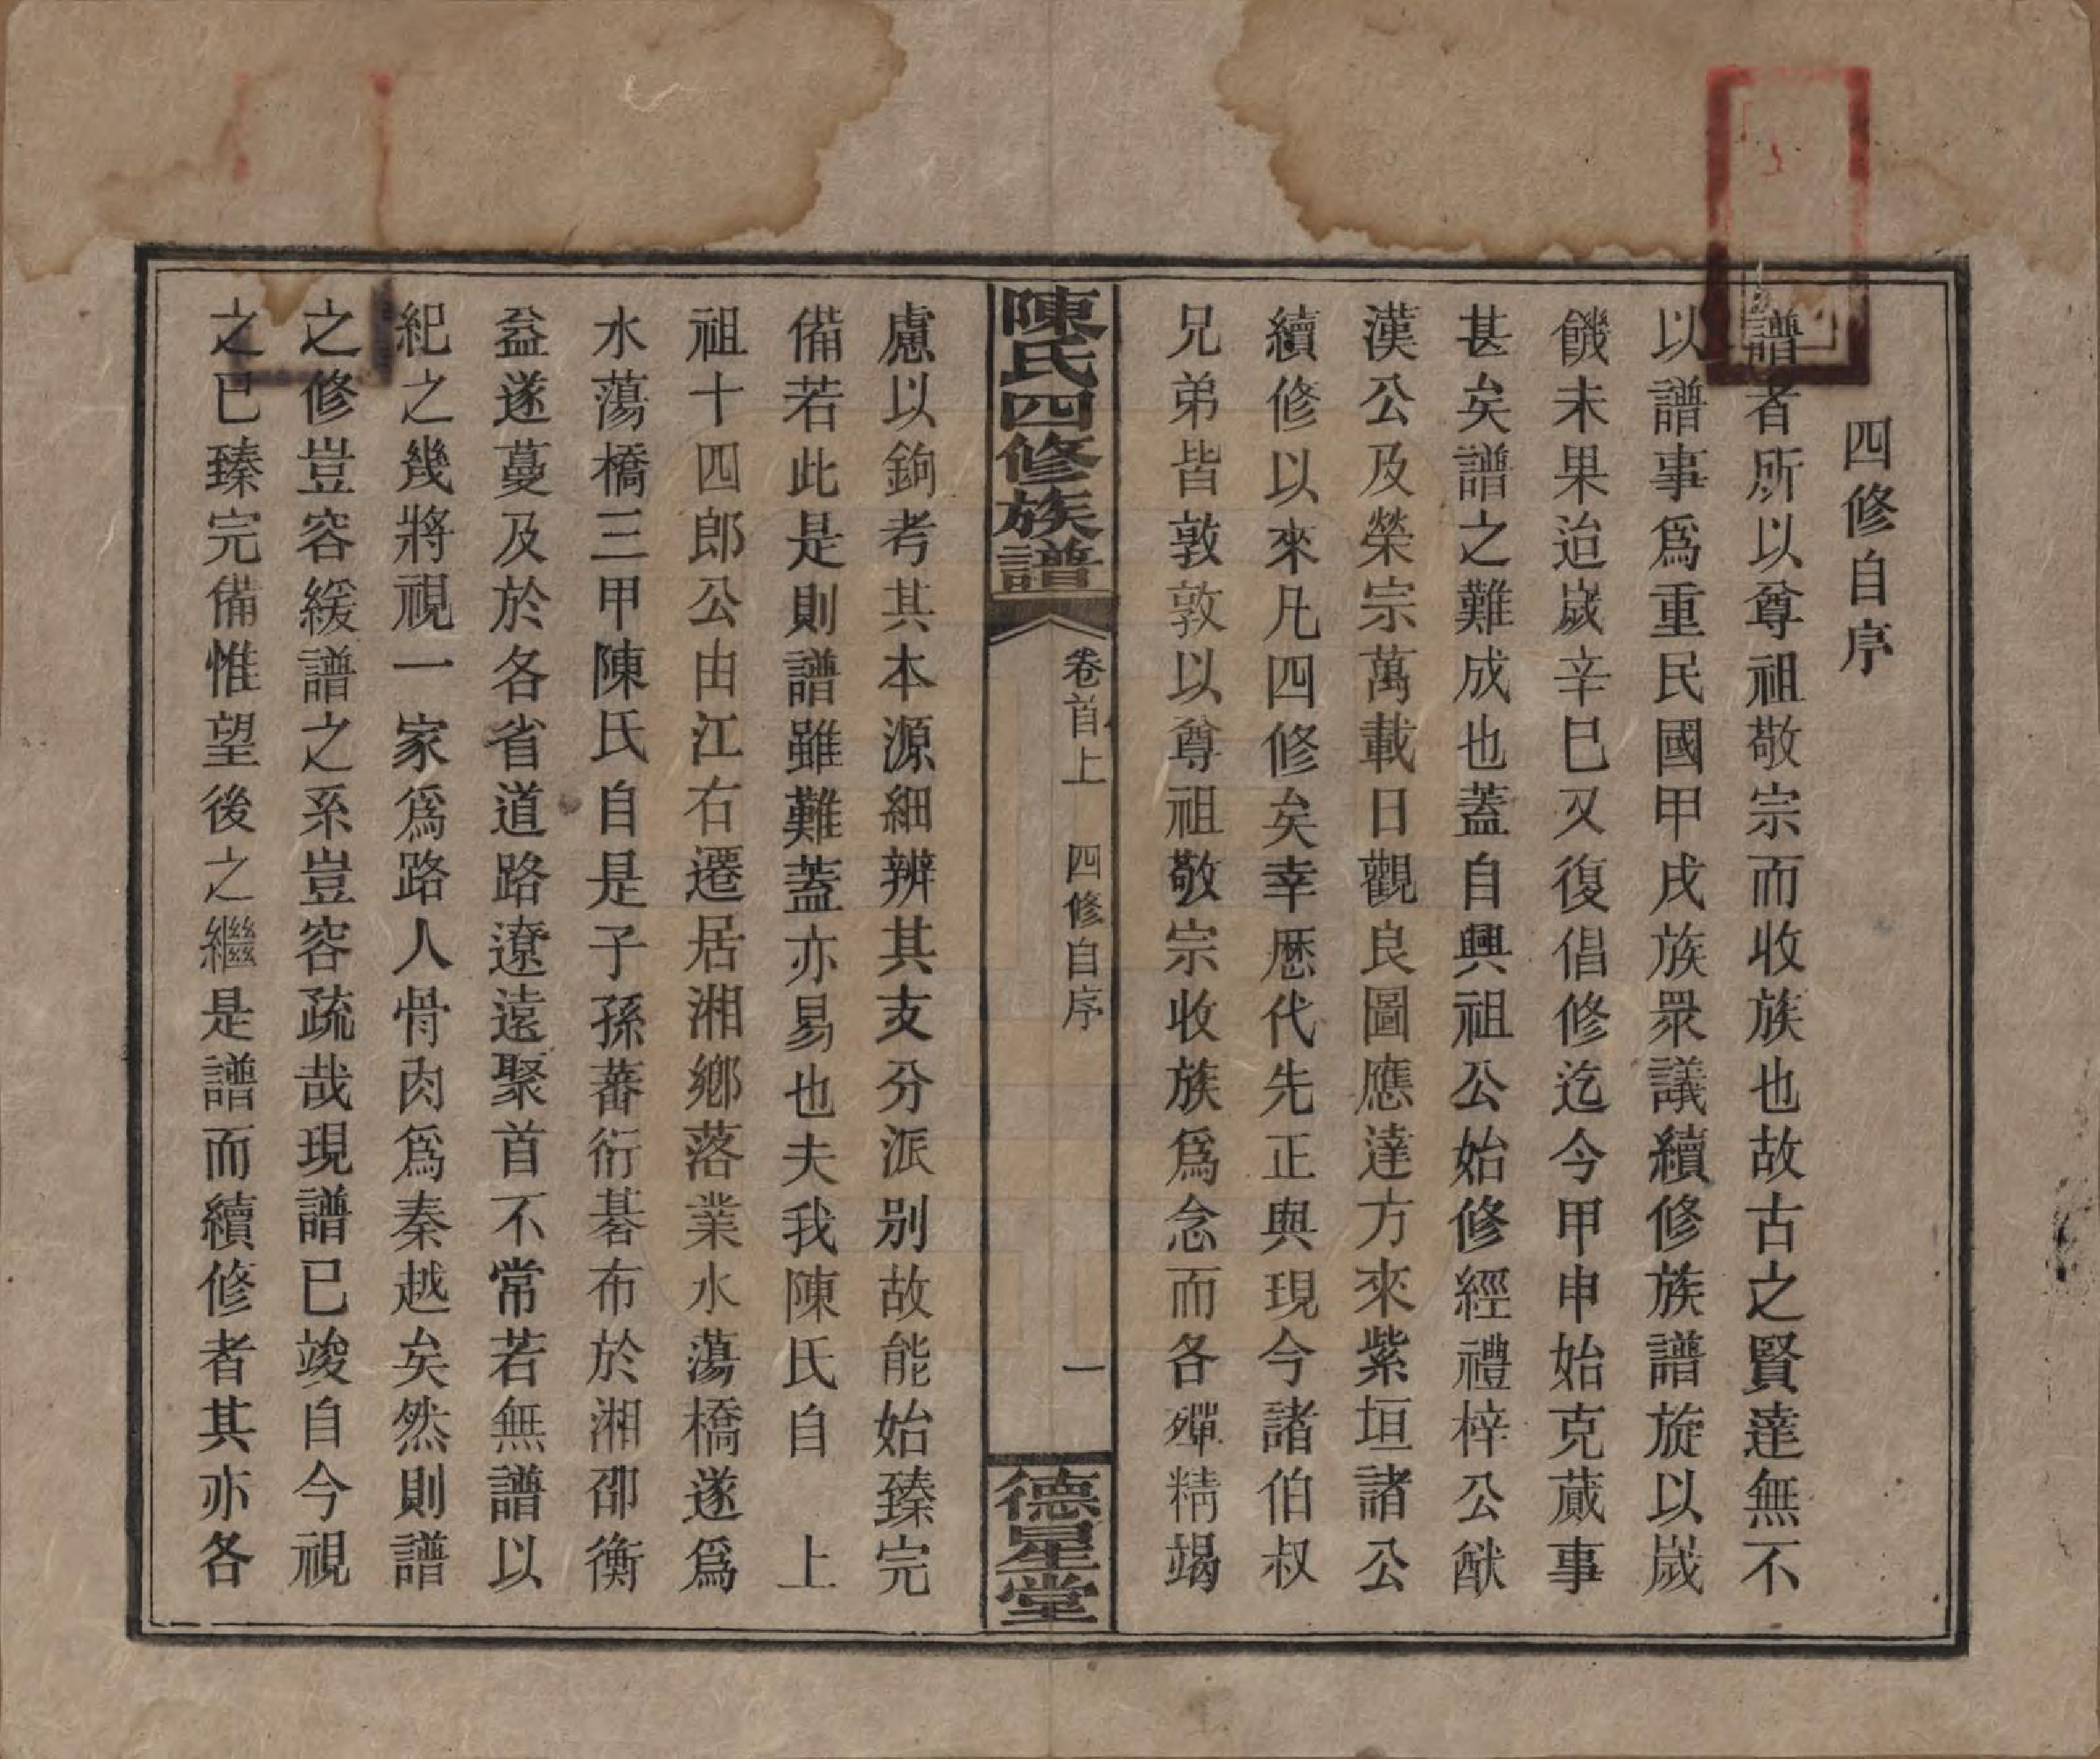 四修自序
譜者所以尊祖敬宗而收族也故古之賢達無不
以譜事爲重民國甲戌族眾議續修族譜旋以歲
饑未果迨歲辛巳又復倡修迄今甲申始克蕆事
甚矣譜之難成也蓋自興祖公始修經禮梓公猷
漢公及榮宗萬載日觀良圖應達方來紫垣諸公
續修以來凡四修矣幸歷代先正與現今諸伯叔
兄弟皆敦敦以尊祖敬宗收族爲念而各殫精竭
陳氏四修族譜
卷首上 四修自序 一
德星堂
慮以鉤考其本源細辨其支分派别故能始臻完
備若此是則譜雖難蓋亦易也夫我陳氏自 上
祖十四郎公由江右遷居湘鄉落業水蕩橋遂爲
水蕩橋三甲陳氏自是子孫蕃衍碁布於湘邵衡
益遂蔓及於各省道路遼遠聚首不常若無譜以
紀之幾將視一家爲路人骨肉爲秦越矣然則譜
之修豈容緩譜之系豈容疏哉現譜已竣自今視
之已臻完備惟望後之繼是譜而續修者其亦各